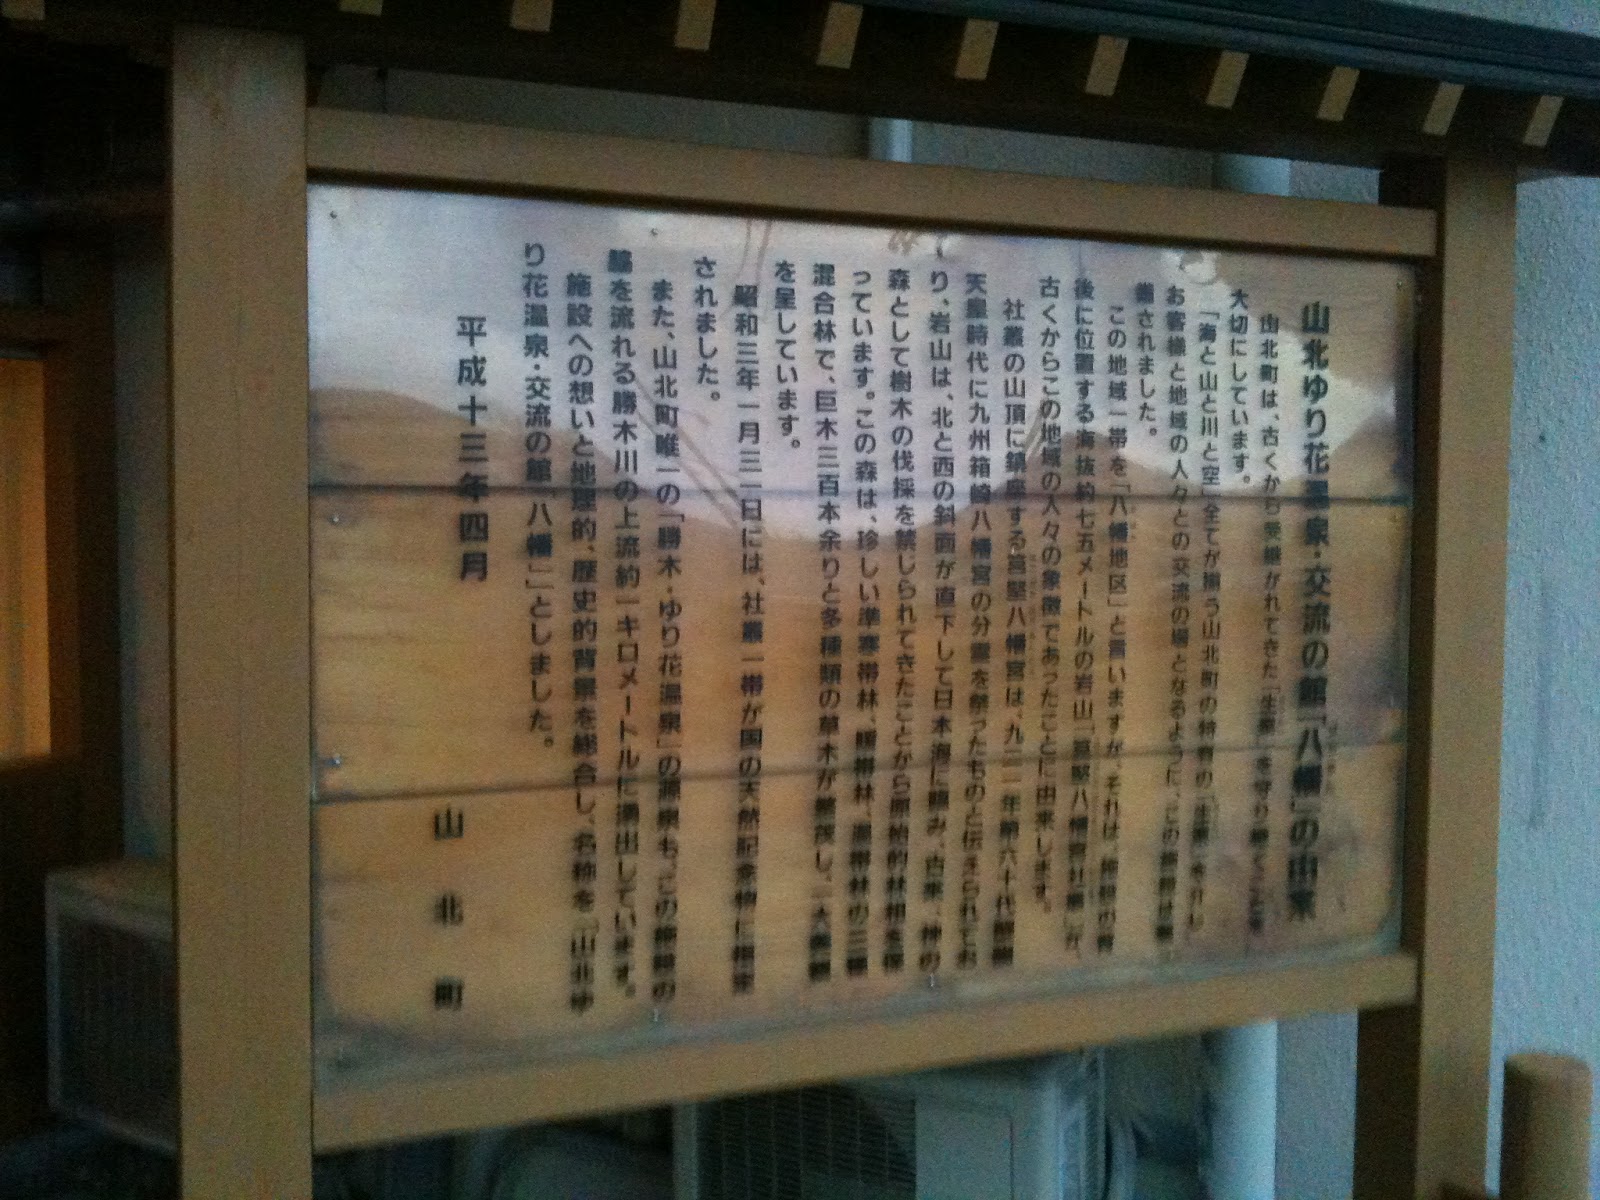 山北ゆり花温泉・交流の館「八幡」の由来
山北町は、古くから受継がれてきた「生業」を守り
大切にしています。
「海と山と川と空」全てが揃う山北町の特有の「生業」を
お客様と地域の人々との交流の場となるように、この施設は
されました。
この地域一帯を「八幡地区」と言いますが、それは、施設の背
後に位置する海抜約七五メートルの岩山「筥堅八幡宮社叢」が、
古くからこの地域の人々の象徴であったことに由来します。
社叢の山頂に鎮座する筥堅八幡宮は、九二一年第六十代醍醐
天皇時代に九州箱崎八幡宮の分霊を祭ったものと伝えられてお
り、岩山は、北と西の斜面が直下して日本海に臨み、古来、神の
森として樹木の伐採を禁じられてきたことから原始的林相を保
っています。この森は、珍しい準寒帯林、暖帯林、温帯林の三種
混合林で、巨木三百本余りと多種類の草木が繁茂し、一大景観
を呈しています。
昭和三年一月三一日には、社叢一帯が国の天然記念物に指定
されました。
また、山北町唯一の「勝木・ゆり花温泉」の源泉も、この施設の
脇を流れる勝木川の上流約一キロメートルに湧出しています。
施設への想いと地理的、歴史的背景を総合し、名称を「山北ゆ
り花温泉・交流の館「八幡」」としました。
平成十三年四月
山北町